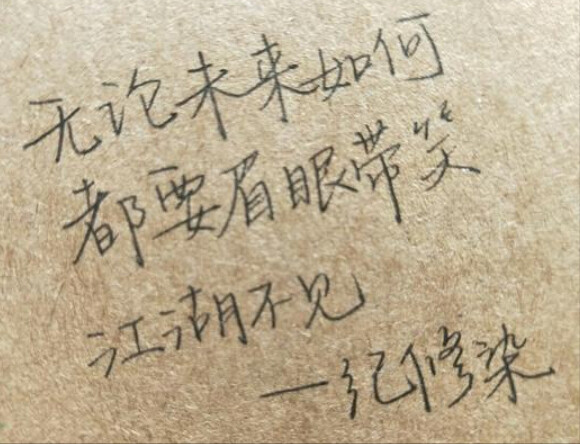 无论未来如何
都要眉眼带笑
江湖不见
—纪修染